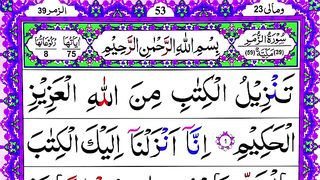 ومالی 23
53
الزمر 39
سُوْرَةُ الزُّمَرِ
بِسْمِ اللّٰهِ الرَّحْمٰنِ الرَّحِيْمِ
اٰيَاتُهَا 75
رُكُوْعَاتُهَا 8
تَنْزِيْلُ الْكِتٰبِ مِنَ اللّٰهِ الْعَزِيْزِ
الْحَكِيْمِ ۝١ اِنَّاۤ اَنْزَلْنَاۤ اِلَيْكَ الْكِتٰبَ